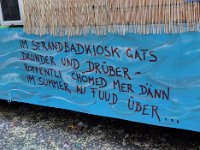 IM STRANDBADKIOSK GATS
DRUNDER UND DRÜBER-
HOFFENTLI CHOMED MER DÄNN
IM SUMMER NU FUUD ÜBER...